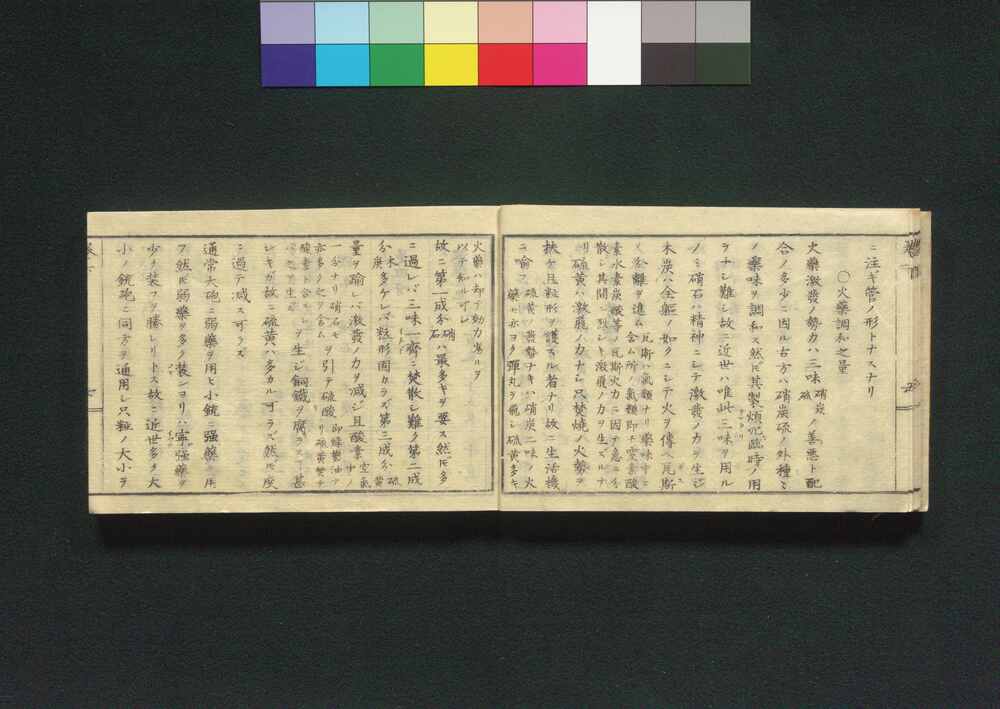 ニ注ギ管ノ形トナスナリ
○火藥調和之量
火藥激發ノ勢力ハ三味硝炭硫ノ善悪ト配
合ノ多少ニ因ル古方ハ硝炭硫ノ外種々
ノ藥味ヲ調和ス然𪜈其製煩冗臨時ノ用
ヲナシ難シ故ニ近世ハ唯此三味ヲ用ル
ノミ硝石ハ精神ニシテ激發ノ力ヲ生ジ
木炭ハ全軀ノ如クニシテ火ヲ傳ヘ瓦斯
瓦斯ハ氣類ナリ藥味中ニ
含ム所ノ氣類即チ窒素酸
素水素炭酸等ノ瓦斯火力ニ因テ急ニ分
散シ其間ニ烈シキ激發ノ力ヲ生ズルナ
リ
ノ分離ヲ進ム
硫黄ハ激發ノ力ナシ只焚燒ノ火勢ヲ
扶ケ且粒形ヲ護スル者ナリ故ニ生活機
ニ喩フ
硫黄ノ蒸勢ナキハ硝炭二味ノ火
藥モ亦ヨク彈丸ヲ飛シ硫黄多キ
火藥ハ却テ動力寡ルヲ
以テ知ル可シ
故ニ第一成分硝石ハ最多キヲ要ス然𪜈多
ニ過レバ三味一齊ニ焚散シ難ク第二成
分木炭多ケレバ粒形固カラズ第三成分硫黄
量ヲ踰レバ激發ノ力ヲ減ジ且酸素
ヲ引テ硫酸
ヲ生ジ銅鐵ヲ腐ラス
甚
シキガ故ニ硫黄ハ多カル可ラズ然𪜈度
ニ過テ減ス可ラズ
通常大砲ニ弱藥ヲ用ヒ小銃ニ强藥ヲ用
フ然𪜈弱藥ヲ多ク装ンヨリハ寧强藥ヲ
少ク装フヲ勝レリトス故ニ近世多ク大
小ノ銃砲ニ同方ヲ通用シ只粒ノ大小ヲ